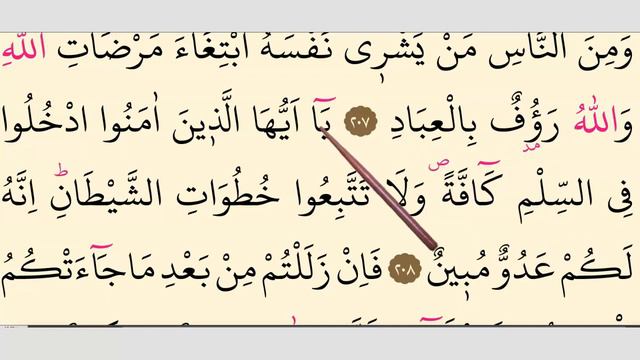 وَمِنَ النَّاسِ مَنْ يَشْرِى نَفْسَهُ ابْتِغَاءَ مَرْضَاتِ اللّٰهِ
وَاللّٰهُ رَؤُفٌ بِالْعِبَادِ ﴿٢٠٧﴾ يَٓا اَيُّهَا الَّذِينَ اٰمَنُوا ادْخُلُوا
فِى السِّلْمِ كَٓافَّةً وَلَا تَتَّبِعُوا خُطُوَاتِ الشَّيْطَانِ اِنَّهُ
لَكُمْ عَدُوٌّ مُبِينٌ ﴿٢٠٨﴾ فَاِنْ زَلَلْتُمْ مِنْ بَعْدِ مَا جَٓاءَتْكُمُ